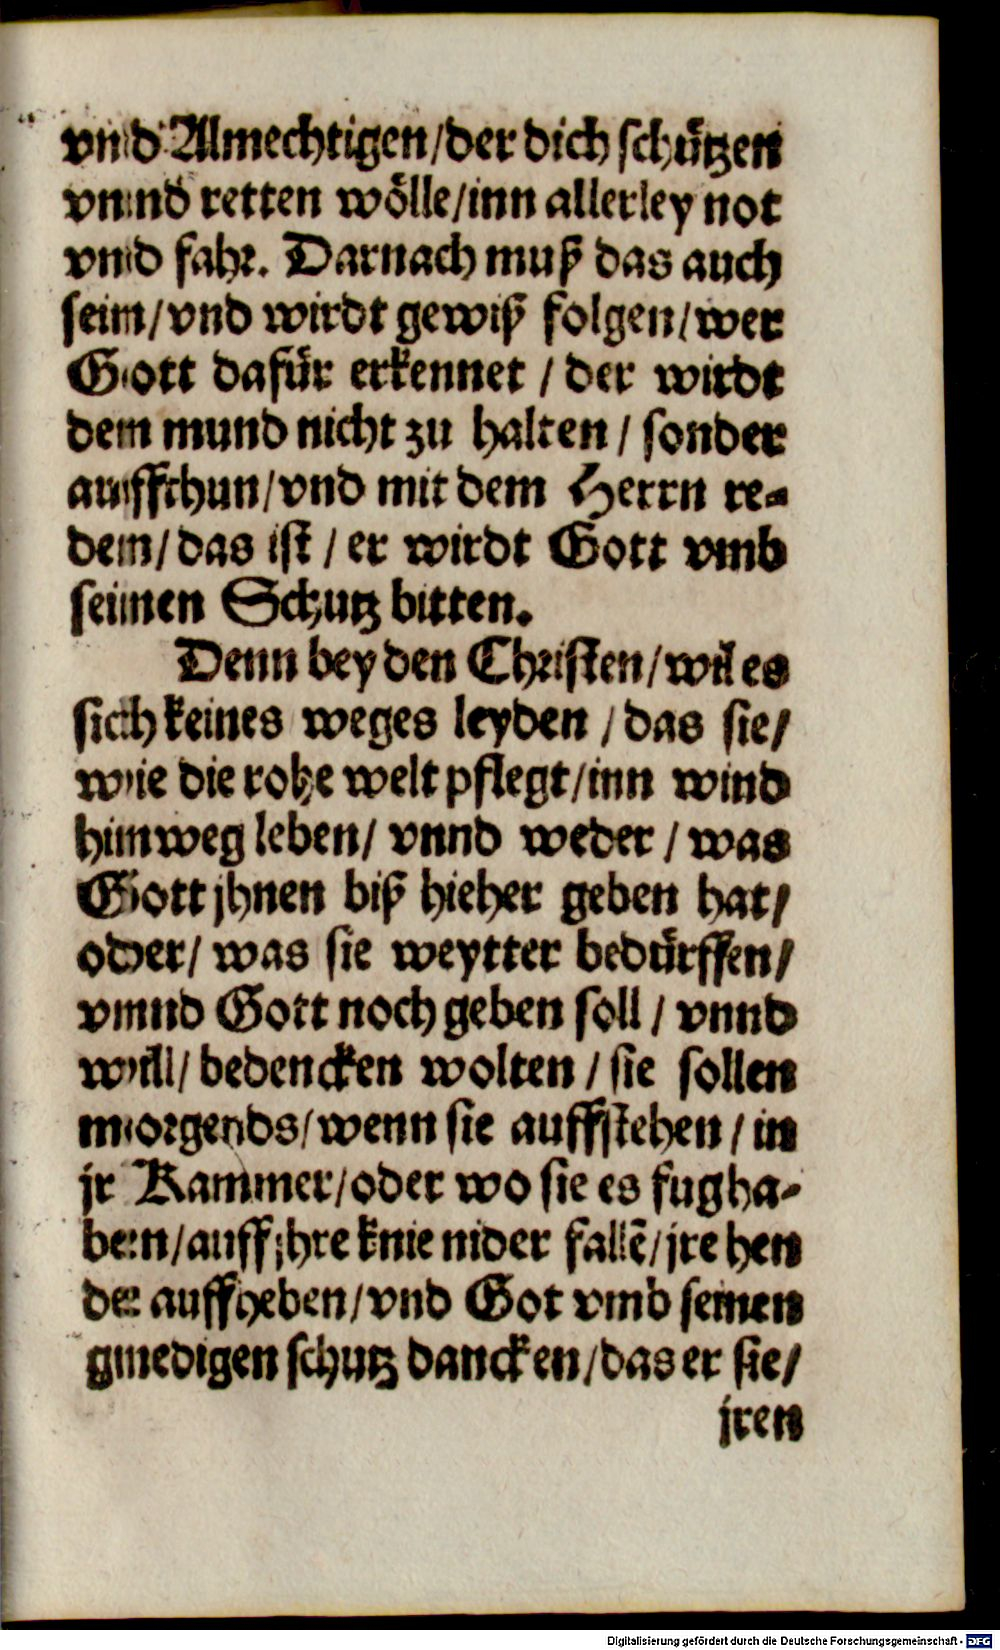 vnd Almechtigen/der dich schützen
vnnd retten wölle/inn allerley not
vnd fahr. Darnach muß das auch
sein/vnd wirdt gewiß folgen/wer
Gott dafür erkennet / der wirdt
den mund nicht zu halten / sonder
auffthun/vnd mit dem Herrn re-
den/das ist / er wirdt Gott vmb
seinen Schutz bitten.
Denn bey den Christen/wil es
sich keines weges leyden / das sie/
wie die rohe welt pflegt/inn wind
hinweg leben/ vnnd weder / was
Gott jhnen biß hieher geben hat/
oder/ was sie weytter bedürffen/
vnnd Gott noch geben soll / vnnd
will/ bedencken wolten / sie sollen
morgends/wenn sie auffstehen / in
jr Kammer/oder wo sie es fug ha-
ben/auff jhre knie nider fallē/jre hen
de auffheben/vnd Got vmb seinen
gnedigen schutz dancken/das er sie/
jren
Digitalisierung gefördert durch die Deutsche Forschungsgemeinschaft - DFG